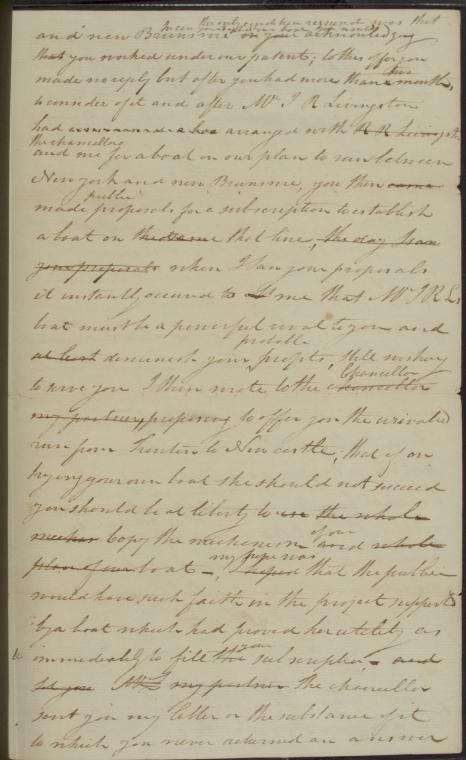 the only condition required was that
in case you used our boat you would
and new Brunswic on your acknowledging
that you worked under our patent; to this offer you
made no reply but after you had more than two a months
to consider of it and after Mr J R Livingston
had arranged with R R Livingst
the chancellor
and me for a boat on our plan to run between
New york and new Brunswic, you then came
public
made proposals for a subscription to establish
a boat on the same that line, the day I saw
your proposals when I saw your proposals
it instantly occured to me that Mr J R Ls
boat must be a powerful rival to you and
probable
at least diminish your profits, still wishing
Chancellor
to serve you I then wrote to the chancellor
my partner proposing to offer you the unrivaled
run from Trenton to New castle, that if on
trying your own boat she should not succeed
you should be at liberty to use the whole
of our
copy the mechanism and whole
my hope was
plan of our boat –, hoped that the public
would have such faith in the project supported
by a boat which had proved her utility as
your
to immediately to fill the subscription – and
let you my partner the chancellor
sent you my letter or the substance of it
to which you never returned an answer